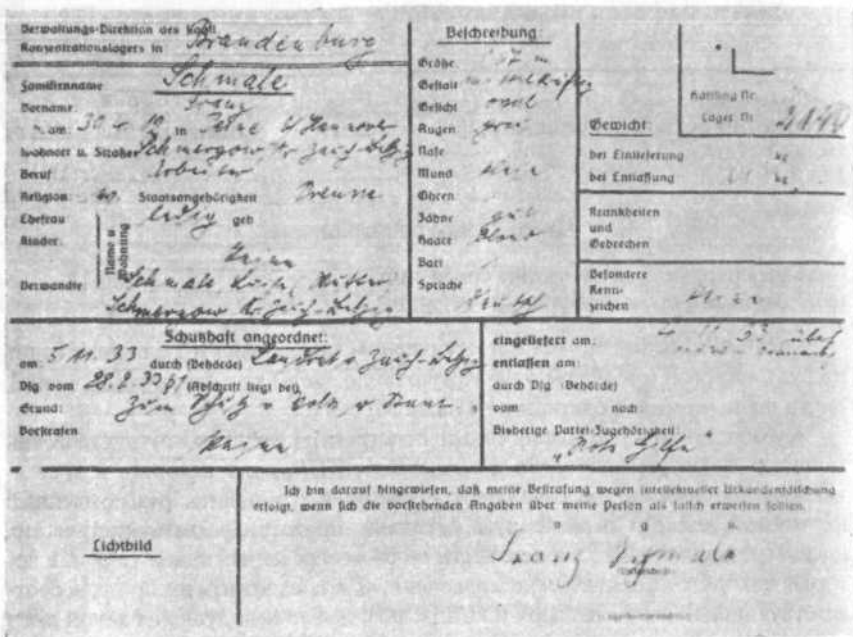 Verwaltungs-Direktion des staatl.
Konzentrationslagers in Brandenburg
Familienname Schmale
Vorname: Franz
am: 30. in Hannover
Wohnort u. Straße Schmergow Kr Zauch-Belzig
Beruf Arbeiter
Religion ev. Staatsangehörigkeit Preusse
Ehefrau ledig geb
Kinder:
Name u. Wohnung
Keine
Verwandte Schmale Mutter
Schmergow Kr. Zauch-Belzig
Beschreibung
Größe m
Gestalt mittelkräftig
Gesicht oval
Augen grau
Nase
Mund klein
Ohren
Zähne gut
Haare blond
Bart
Sprache deutsch
Häftling Nr.
Lager Nr.
Gewicht:
bei Einlieferung kg
bei Entlassung kg
Krankheiten
und
Gebrechen
Besondere
Kenn-
zeichen keine
Schutzhaft angeordnet:
am: 5.11.33 durch (Behörde) Landrat v Zauch-Belzig
Vfg vom 28.2.33 (Abschrift liegt bei)
Grund: Zum Schutz v Volk u Staat
Vorstrafen
Keine
eingeliefert am: 11 33
entlassen am:
durch Vfg (Behörde)
vom nach
Bisherige Partei-Zugehörigkeit:
"Rote Hilfe"
Lichtbild
Ich bin darauf hingewiesen, daß meine Bestrafung wegen intellektueller Urkundenfälschung
erfolgt, wenn sich die vorstehenden Angaben über meine Person als falsch erweisen sollten.
v g u
Franz Schmale